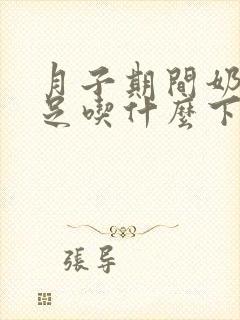 月子期間奶
足喫什麼下
張导